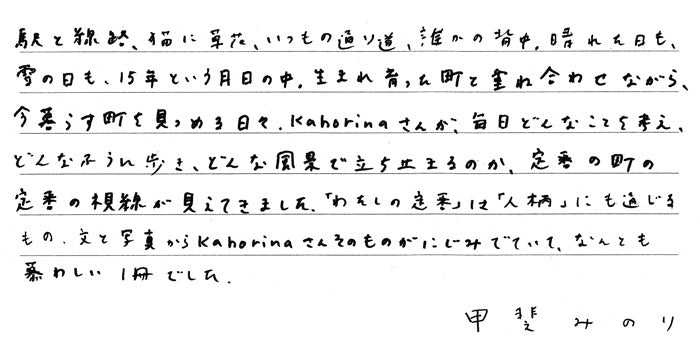 駅と線路、猫に草花、いつもの通り道、誰かの背中。晴れた日も、
雪の日も、15年という月日の中。生まれ育った町と重ね合わせながら、
今暮らす町を見つめる日々。Kahorinaさんが、毎日どんなことを考え、
どんなふうに歩き、どんな風景で立ち止まるのか。定番の町の
定番の視線が見えてきました。「わたしの定番」は「人柄」にも通じる
もの。文と写真からKahorinaさんそのものがにじみでていて、なんとも
慕わしい1冊でした。
甲斐みのり